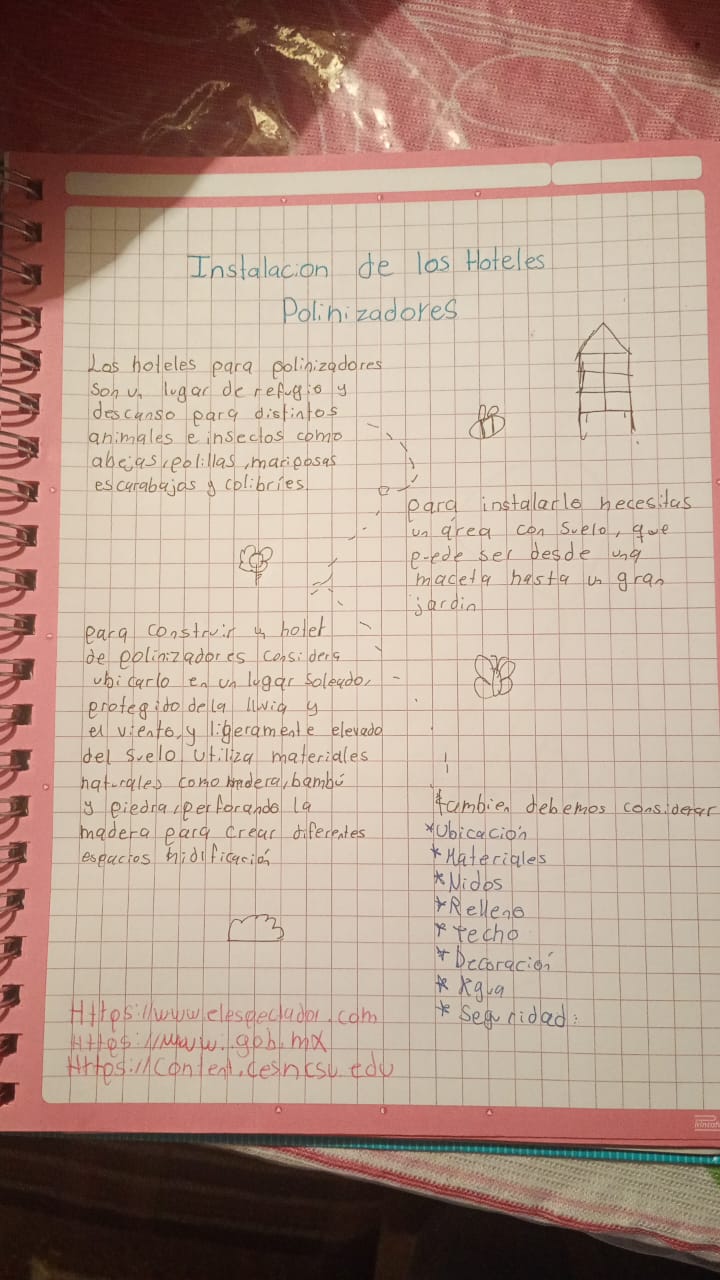 Instalacion de los Hoteles
Polinizadores
Los hoteles para polinizadores
son un lugar de refugio y
descanso para distintos
animales e insectos como
abejas, polillas, mariposas
escarabajos y colibríes.
para instalarlo necesitas
un área con suelo, que
puede ser desde una
maceta hasta un gran
jardin
para construir un hotel
de polinizadores considera
ubicarlo en un lugar soleado,
protegido de la lluvia y
el viento, y ligeramente elevado
del suelo utiliza materiales
naturales como madera, bambú
y piedra, perforando la
madera para crear diferentes
espacios nidificación
tambien debemos considerar
*Ubicación
*Materiales
*Nidos
*Relleno
*techo
*Decoración
*Agua
*Seguridad:
Https://www.elespectador.com
Https://www.gob.mx
Https://content.cesncsu.edu